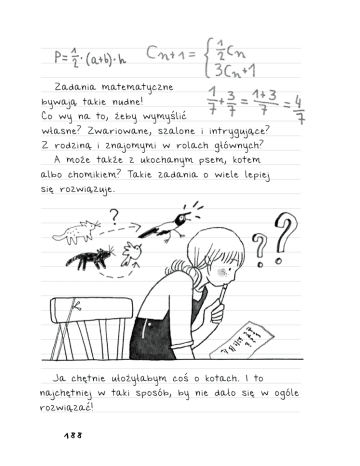 P = 1/2 · (a+b) · h
Cn+1 = { 1/2 Cn
3Cn+1
1/7 + 3/7 = 1+3/7 = 4/7
Zadania matematyczne
bywają takie nudne!
Co wy na to, żeby wymyślić
własne? Zwariowane, szalone i intrygujące?
Z rodziną i znajomymi w rolach głównych?
A może także z ukochanym psem, kotem
albo chomikiem? Takie zadania o wiele lepiej
się rozwiązuje.
?
? ?
Ja chętnie ułożyłabym coś o kotach. I to
najchętniej w taki sposób, by nie dało się w ogóle
rozwiązać!
188